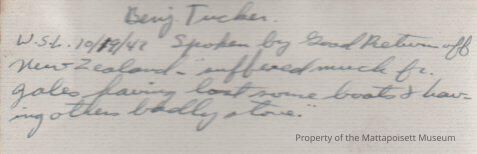 Benj. Tucker.
W.S.L. 10/19/42 Spoken by Good Return off
New Zealand - "suffered much fr.
gales having lost some boats & hav-
ing others badly stove."
Property of the Mattapoisett Museum